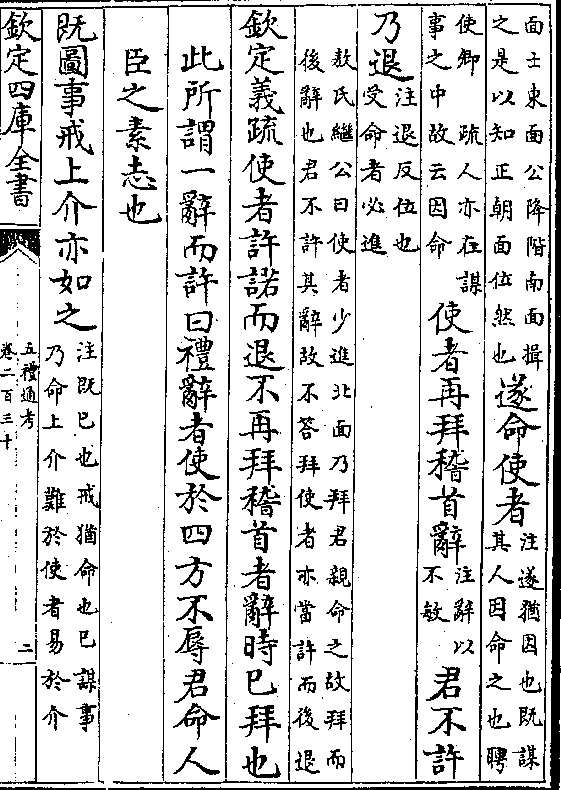 面士東面公降階南面揖
之是以知正朝面位然也
遂命使者
注遂猶因也既謀
其人因命之也聘
使卿 疏人亦在謀
事之中故云因命
使者再拜稽首辭
注辭以
不敏
君不許
乃退
注退反伍也
受命者必進
敖氏繼公曰使者少進北面乃拜君親命之故拜而
後辭也君不許其辭故不答拜使者亦當許而後退
欽定義疏使者許諾而退不再拜稽首者辭時已拜也
此所謂一辭而許曰禮辭者使於四方不辱君命人
臣之素志也
既圖事戒上介亦如之
注既已也戒猶命也已謀事
乃命上介難於使者易於介
欽定四庫全書
五禮通考
卷二百三十
二